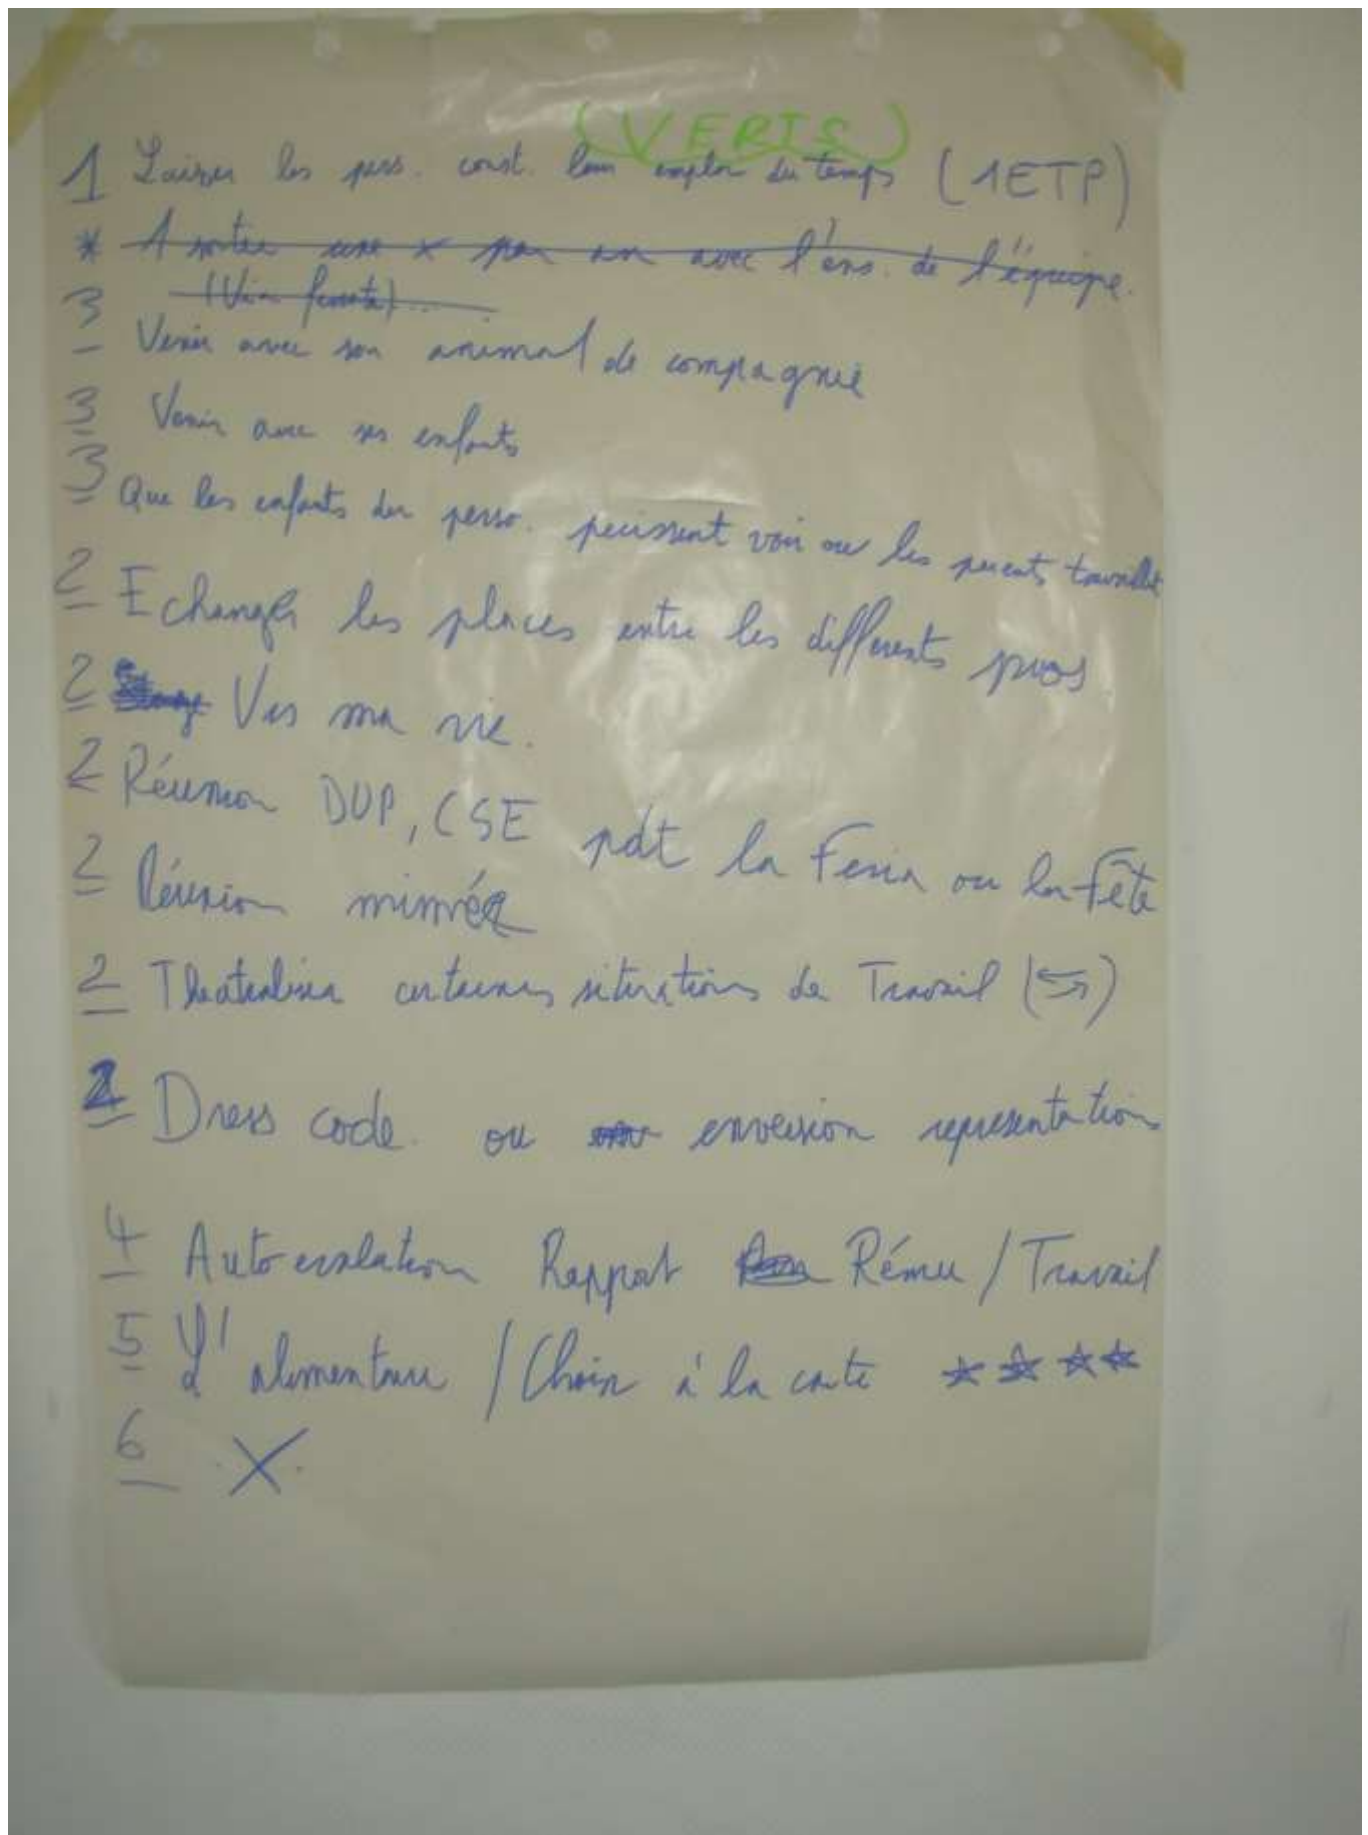 (VERTS)
1 Laisser les pers. const. leur emploi du temps (1ETP)
* A sortie une x par an avec l'ens. de l'équipe.
(Via ferrata)...
3 Venir avec son animal de compagnie
3 Venir avec ses enfants
3 Que les enfants des perso. puissent voir ou les parents travaillent
2 Echanger les places entre les différents pros
2 Vis ma vie.
2 Réunion DUP, CSE pdt la Feria ou la Fête
2 Réunion mimée
2 Théatraliser certaines situations de Travail (⇆)
2 Dress code ou enversion representation
4 Auto evalation Rapport Rému / Travail
5 L'alimentaire / Choix à la carte ☆☆☆☆
6 X